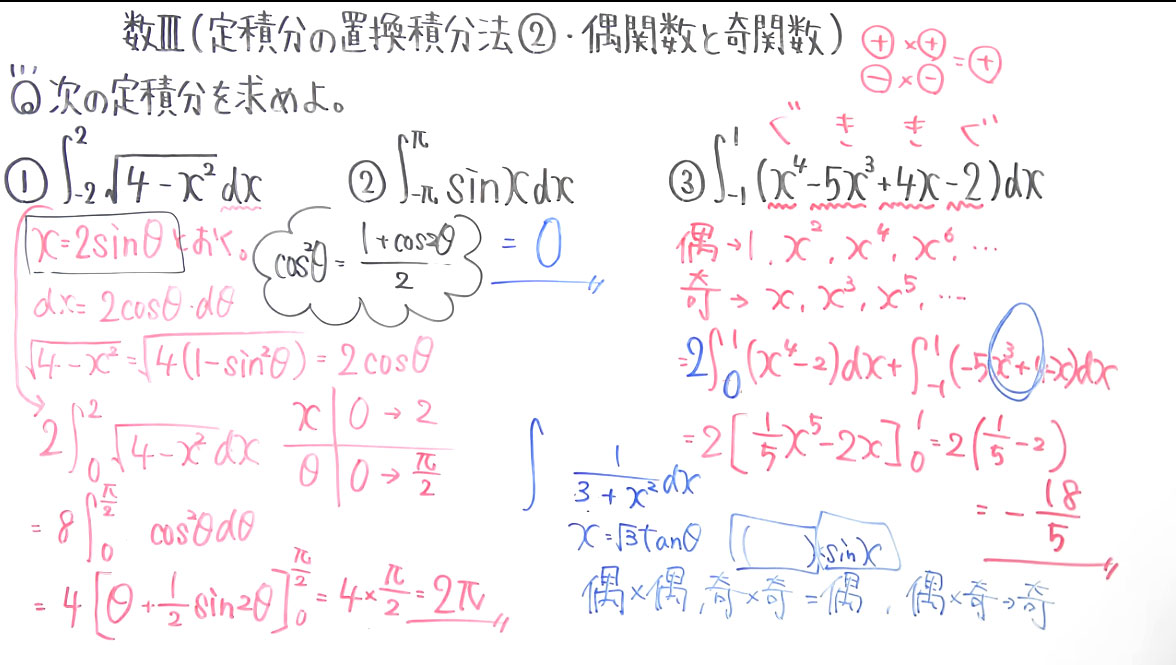 数Ⅲ(定積分の置換積分法②・偶関数と奇関数)
⊕×⊕
⊖×⊖
=⊕
Q 次の定積分を求めよ。
ぐ き き ぐ
① ∫_{-2}^{2} √(4-x²) dx
② ∫_{-π}^{π} sinx dx
③ ∫_{-1}^{1} (x⁴-5x³+4x-2)dx
x=2sinθとおく。
cos²θ = (1+cos2θ)/2
= 0
dx=2cosθ・dθ
√(4-x²)=√(4(1-sin²θ))=2cosθ
2∫_{0}^{2} √(4-x²) dx
x | 0→2
θ | 0→π/2
=8∫_{0}^{π/2} cos²θdθ
=4[θ+1/2 sin2θ]_{0}^{π/2}=4×π/2=2π
偶→1, x², x⁴, x⁶, …
奇→x, x³, x⁵, …
=2∫_{0}^{1}(x⁴-2)dx+∫_{-1}^{1}(-5x³+ x)dx
=2[1/5 x⁵-2x]_{0}^{1}=2(1/5-2)
=-18/5
∫ 1/(3+x²) dx
x=√3tanθ
( )×sinx
偶×偶, 奇×奇=偶, 偶×奇→奇